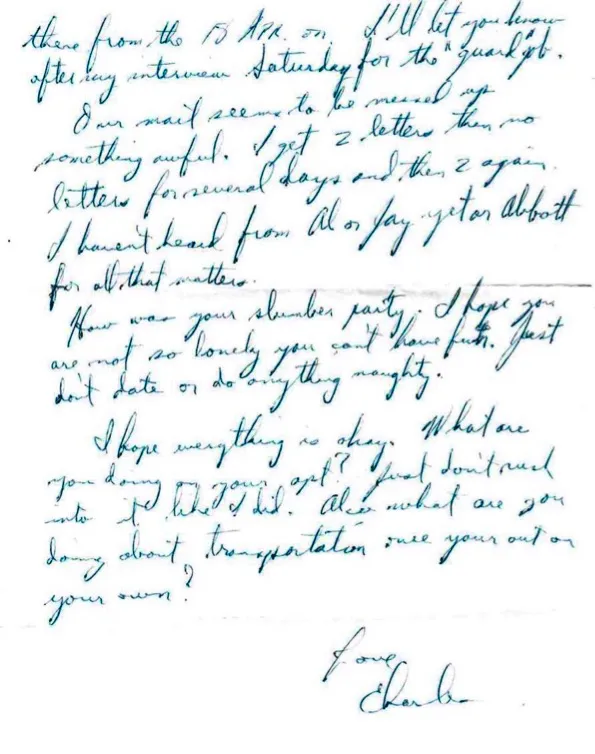 there from the 15 APR. on. I'll let you know
after my interview Saturday for the "guard" job.
Our mail seems to be messed up
something awful. I get 2 letters then no
letters for several days and then 2 again.
I haven't heard from Al or Jay yet or Abbott
for all that matters.
How was your slumber party. I hope you
are not so lonely you can't have fun. Just
don't date or do anything naughty.
I hope everything is okay. What are
you doing on your apt? Just don't rush
into it like I did. Also what are you
doing about transportation once your out on
your own?
Love
Charles